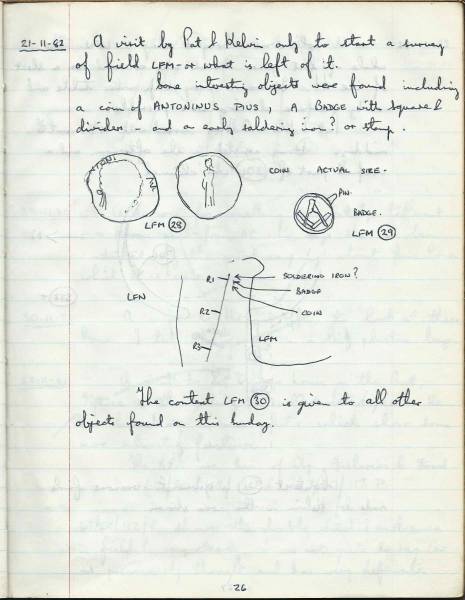 21-11-82 A visit by Pat & Kelvin only to start a survey
of field LFM - or what is left of it.
Some intresting objects were found including
a coin of ANTONINUS PIUS, A BADGE with Square &
dividers - and a early soldering iron? or stamp.
ANTONI
COIN ACTUAL SIZE.
PIN.
BADGE.
LFM 28
LFM 29
R1 SOLDERING IRON?
BADGE
LFN
R2 COIN
R3 LFM
The context LFM 30 is given to all other
objects found on this Sunday.
26